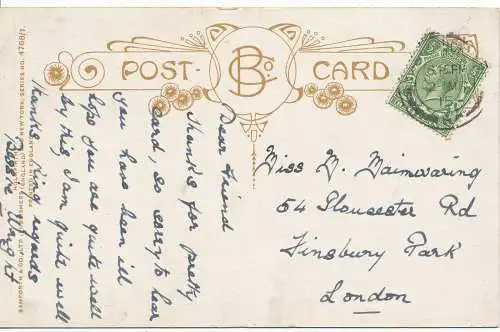 POST CARD
B Co.
Dear Friend
Thanks for pretty
card, so sorry to hear
you have been ill
hope you are quite well
by this I am quite well
thanks, King regards
Miss M. Mainwaring
54 Gloucester Rd
Finsbury Park
London
BAMFORTH & CO., LTD. PUBLISHERS (ENGLAND) NEW YORK. SERIES NO. 4768/1.
HOLMFIRTH
PRINTED IN ENGLAND